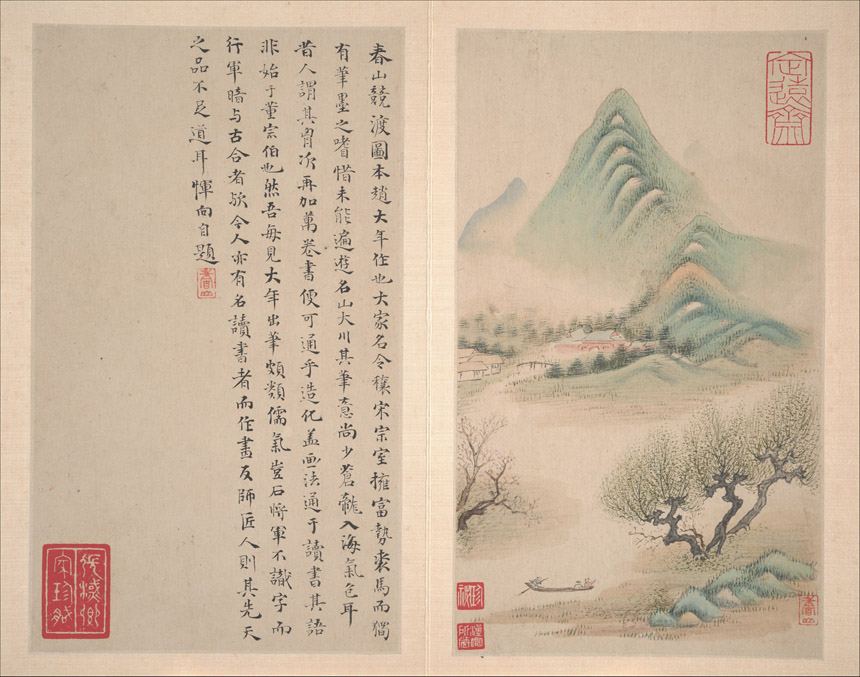 春山競渡圖本趙大年作也大家名令穰宋宗室擁富勢裘馬而獨
有筆墨之嗜惜未能遍遊名山大川其筆意尚少蒼龍入海氣色耳
昔人謂其胷次再加萬卷書便可通乎造化盖画法通于讀書其語
非始于董宗伯也然吾每見大年出筆頗類儒氣豈石將軍不識字而
行軍暗与古合者歟今人亦有名讀書者而作畫反師匠人則其先天
之品不足道耳惲向自題
定遠齋